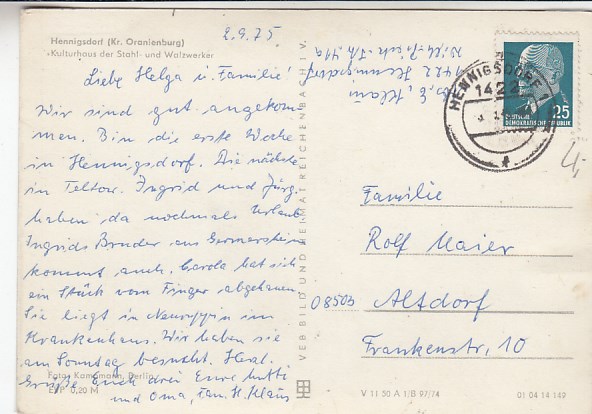 Hennigsdorf (Kr. Oranienburg)
Kulturhaus der Stahl- und Walzwerker
2.9.75
Liebe Helga u. Familie!
Wir sind gut angekom-
men. Bin die erste Woche
in Hennigsdorf. Die nächste
in Teltow. Ingrid und Jürg.
haben da nochmals Urlaub
Ingrids Bruder aus Germersheim
kommt auch. Carola hat sich
ein Stück vom Finger abgehauen
Sie liegt in Neuruppin im
Krankenhaus. Wir haben sie
am Sonntag besucht. Herzl.
Grüße Euch drei Eure Mutti
und Oma, Fam. H. Klaus
Foto: Kampmann, Berlin
EVP 0,20 M
VEB BILD UND HEIMAT REICHENBACH I. V.
1422 Hennigsdorf
HENNIGSDORF
1422
DEUTSCHE
DEMOKRATISCHE REPUBLIK
25
4,-
Familie
Rolf Maier
08503 Altdorf
Frankenstr, 10
V 11 50 A 1/B 97/74
01 04 14 149